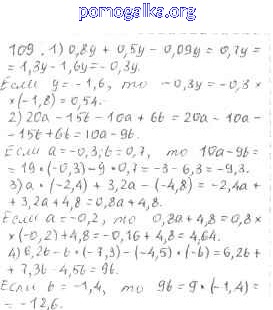 pomogalka.org
109. 1) 0,8y + 0,5y - 0,09y = 0,7y =
= 1,3y - 1,6y = - 0,3y.
Если y = - 1,6, то - 0,3y = - 0,3 ×
× (-1,8) = 0,54.
2) 20a - 15b - 10a + 6b = 20a - 10a -
- 15b + 6b = 10a - 9b.
Если a = -0,3; b = 0,7, то 10a - 9b =
= 19 • (-0,3) - 9 • 0,7 = -3 - 6,3 = -9,3.
3) a • (-2,4) + 3,2a - (-4,8) = -2,4a +
+ 3,2a + 4,8 = 0,8a + 4,8.
Если a = -0,2, то 0,8a + 4,8 = 0,8 ×
× (-0,2) + 4,8 = -0,16 + 4,8 = 4,64.
4) 6,2b - b • (-7,3) - (-4,5) • (-b) = 6,2b +
+ 7,3b - 4,5b = 9b.
Если b = -1,4, то 9b = 9 • (-1,4) =
= -12,6.